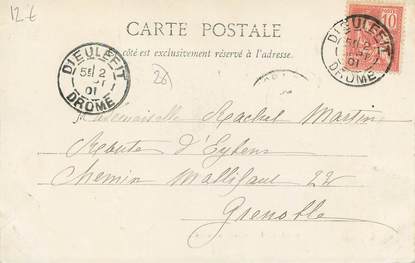 12 €
CARTE POSTALE
côté est exclusivement réservé à l'adresse.
26
10
DIEULEFIT
5E 2
01
DROME
DIEULEFIT
5E 2
01
DROME
Mademoiselle Rachel Martin
Route d'Eybens
Chemin Mallifaut 22
Grenoble